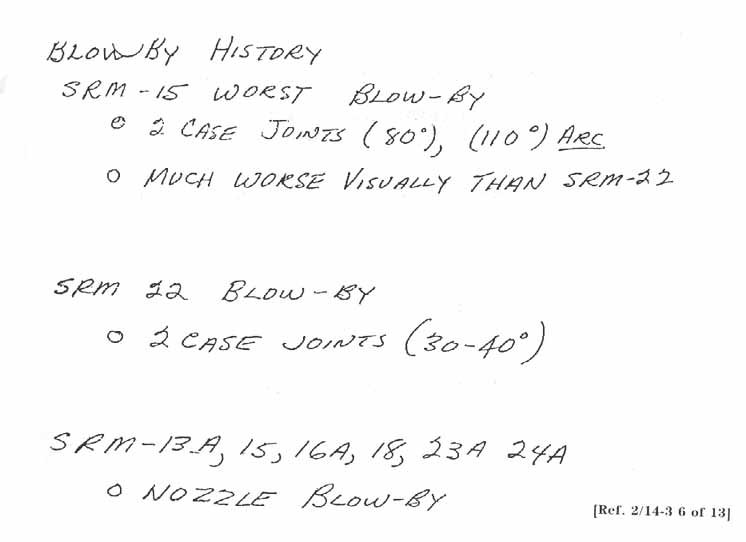 BLOWBY HISTORY
SRM-15 WORST BLOW-BY
o 2 CASE JOINTS (80°), (110°) ARC
o MUCH WORSE VISUALLY THAN SRM-22
SRM 22 BLOW-BY
o 2 CASE JOINTS (30-40°)
SRM-13A, 15, 16A, 18, 23A 24A
o NOZZLE BLOW-BY
[Ref. 2/14-3 6 of 13]